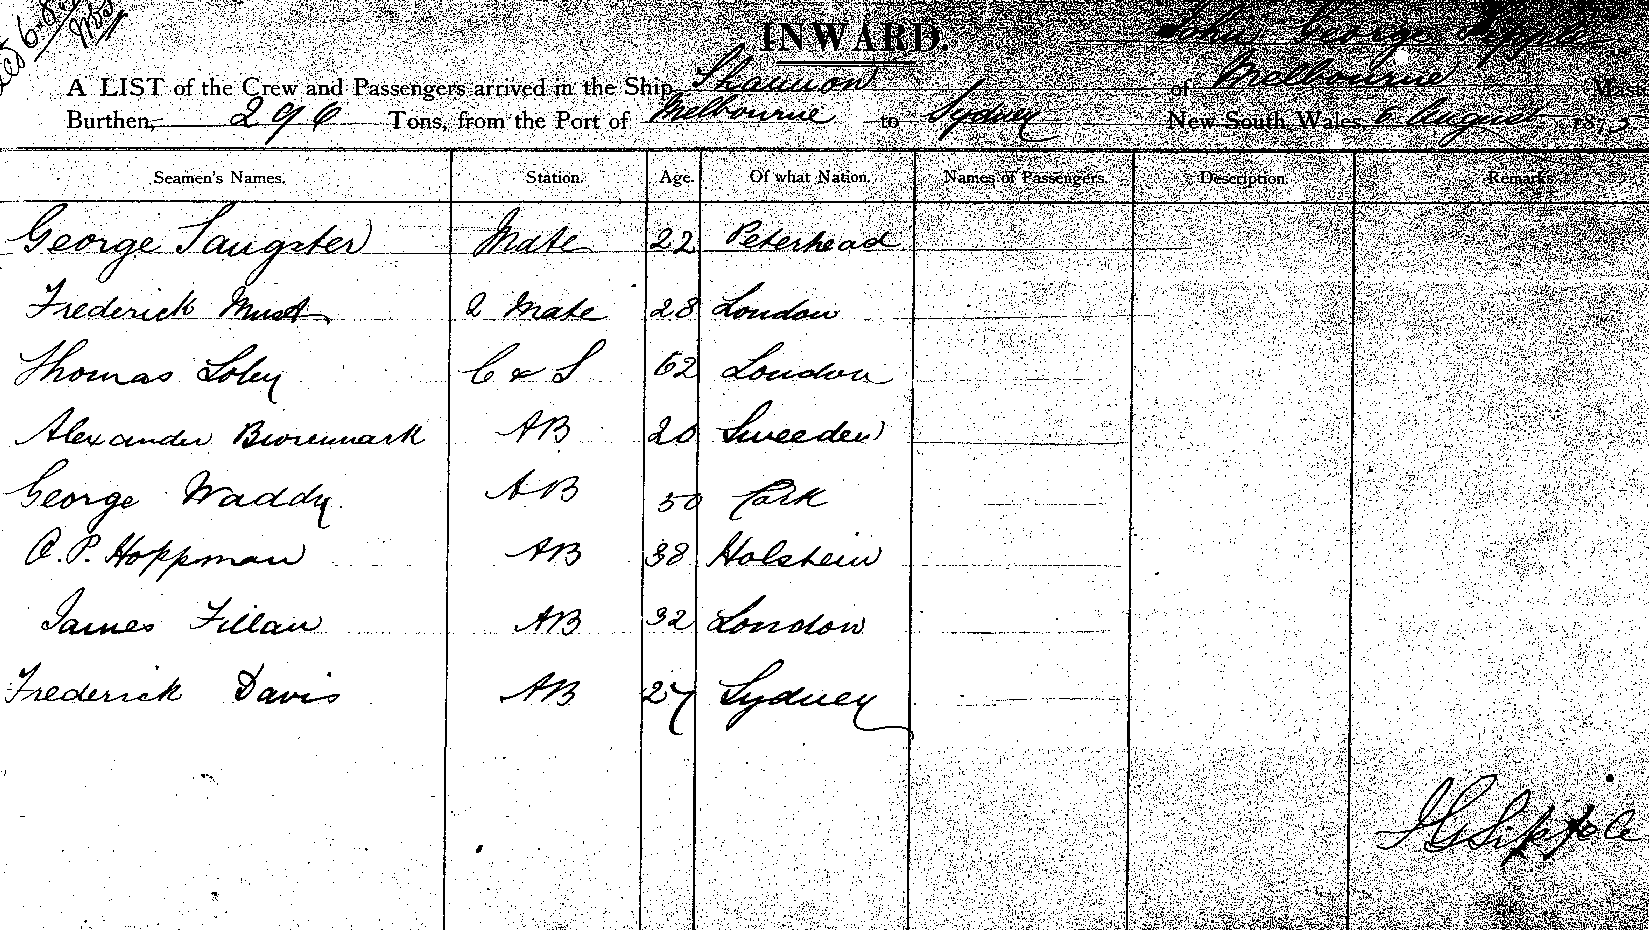 INWARD.
John George
A LIST of the Crew and Passengers arrived in the Ship Shannon of Melbourne
Burthen, 296 Tons, from the Port of Melbourne to Sydney New South Wales, 6 August 1873
Seamen's Names. Station. Age. Of what Nation. Names of Passengers. Description. Remarks.
George Sangster Mate 22 Peterhead
Frederick Must 2 Mate 28 London
Thomas Loby C & S 62 London
Alexander AB 20 Sweeden
George Waddy AB 50 Cork
C. P. Hoppman AB 38 Holstein
James Fillan AB 32 London
Frederick Davis AB 27 Sydney